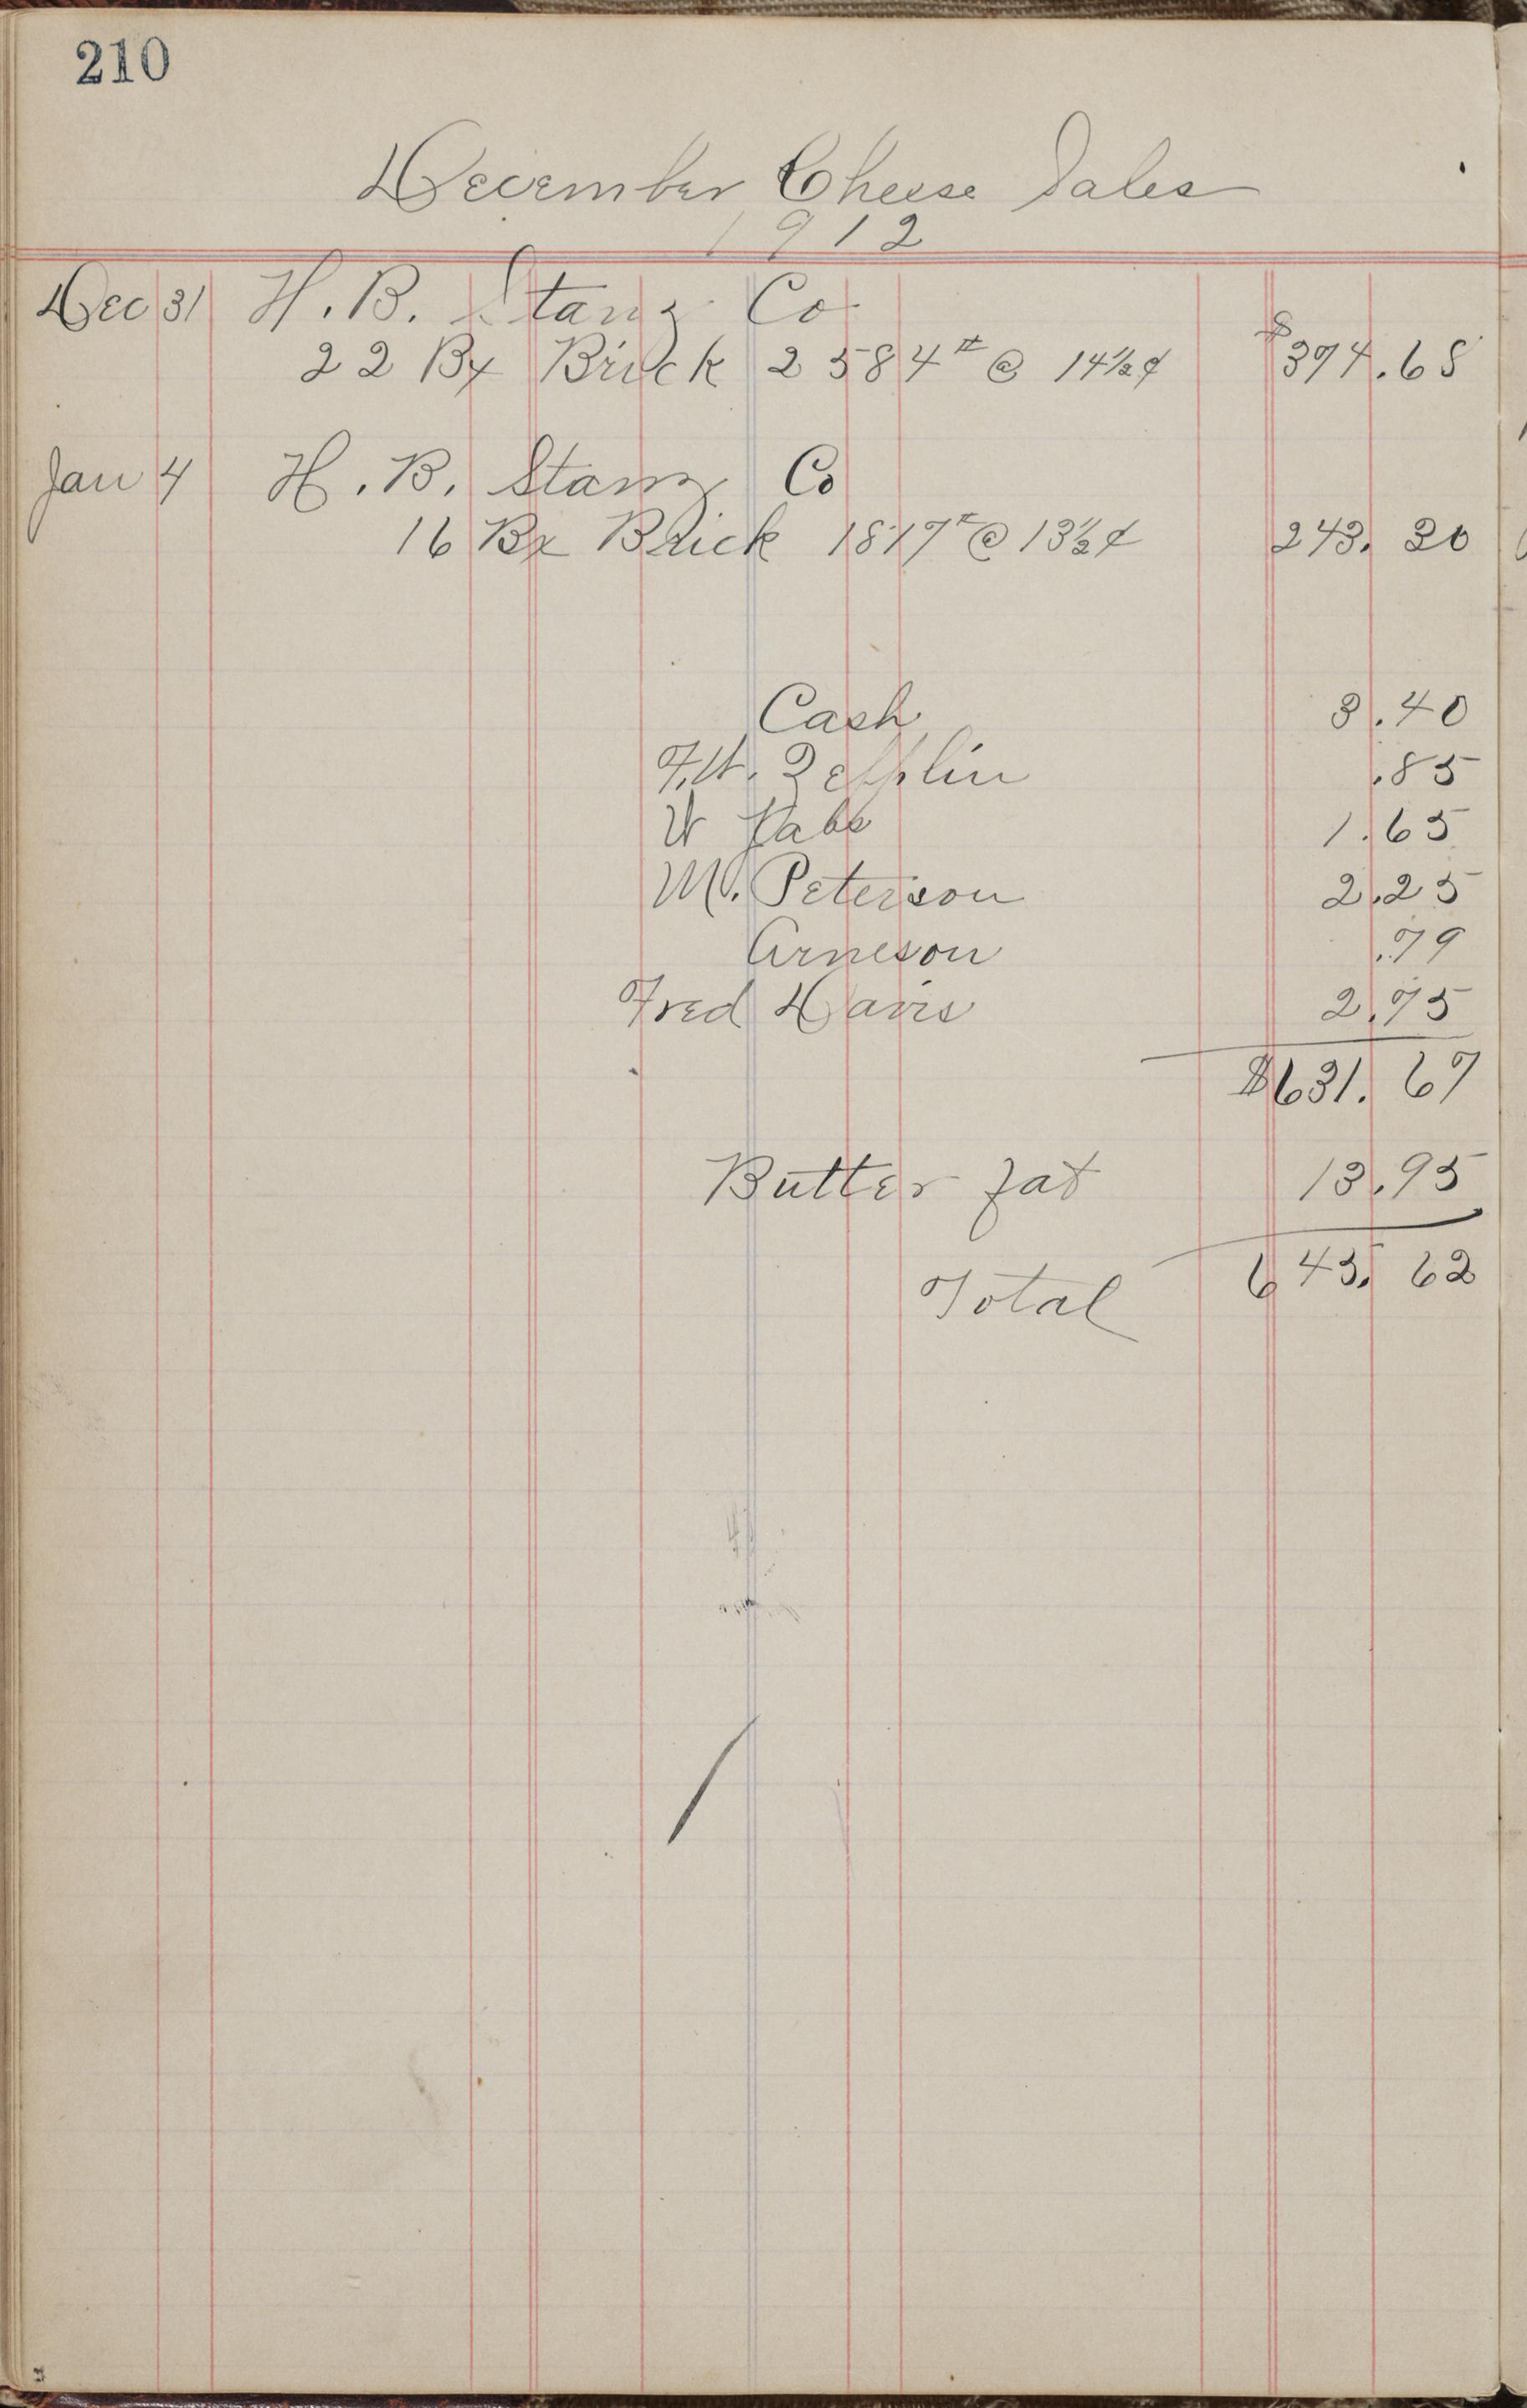 210
December Cheese Sales
1912
Dec 31 H. B. Stanz Co.
22 Bx Brick 2584# @ 14½¢ $374.68
Jan 4 H. B. Stanz Co
16 Bx Brick 1817# @ 13½¢ 245. 30
Cash 3.40
F.W. Zepplin .85
W 1.65
M. Peterson 2.25
Arneson .79
Fred Davis 2.75
$631. 67
Butter fat 13.95
Total 645. 62